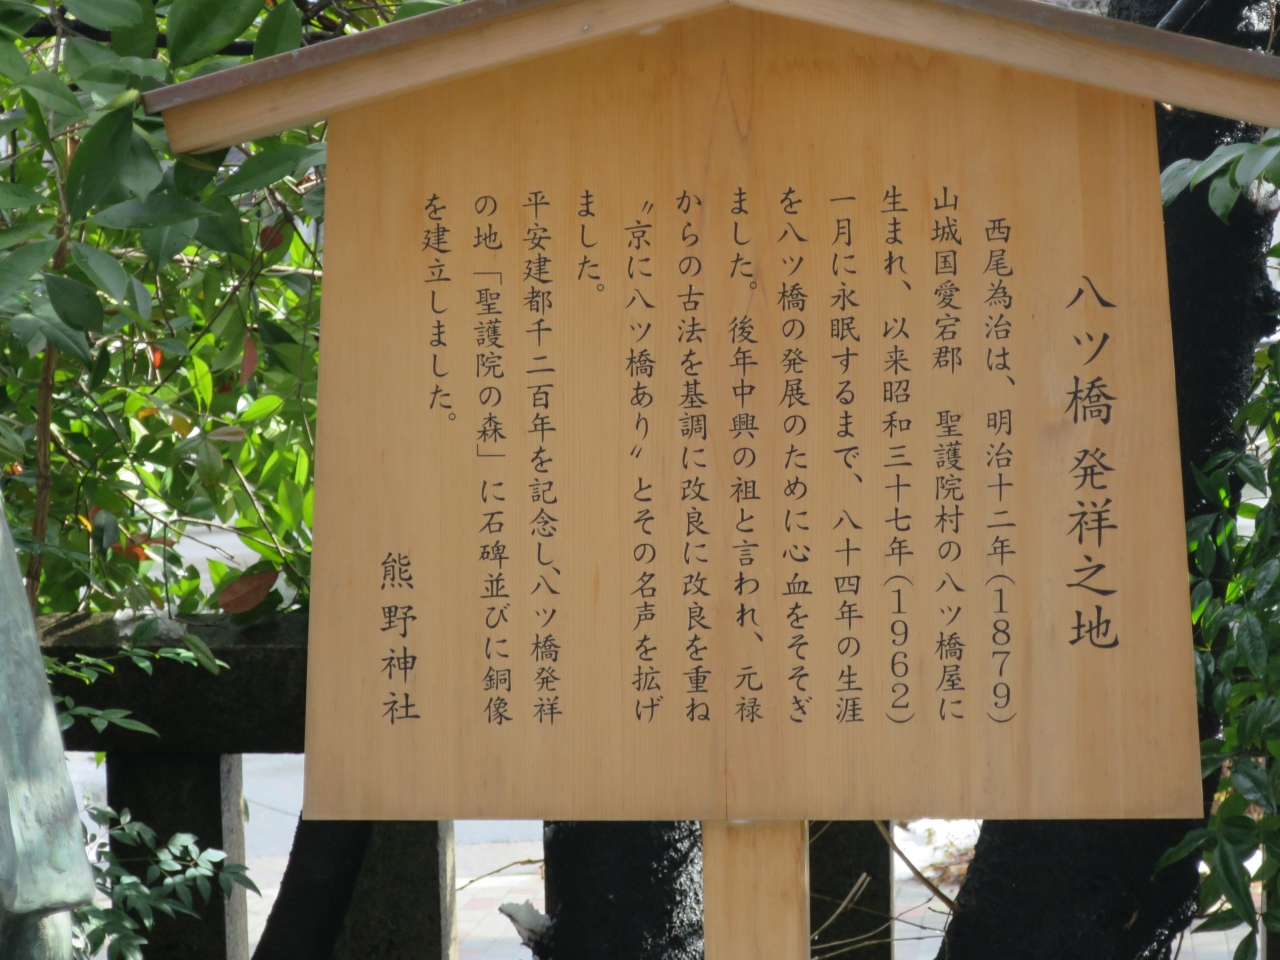 八ツ橋発祥之地
西尾為治は、明治十二年（1879）
山城国愛宕郡　聖護院村の八ツ橋屋に
生まれ、以来昭和三十七年（1962）
一月に永眠するまで、八十四年の生涯
を八ツ橋の発展のために心血をそそぎ
ました。後年中興の祖と言われ、元禄
からの古法を基調に改良に改良を重ね
〃京に八ツ橋あり〃とその名声を拡げ
ました。
平安建都千二百年を記念し、八ツ橋発祥
の地「聖護院の森」に石碑並びに銅像
を建立しました。
熊野神社